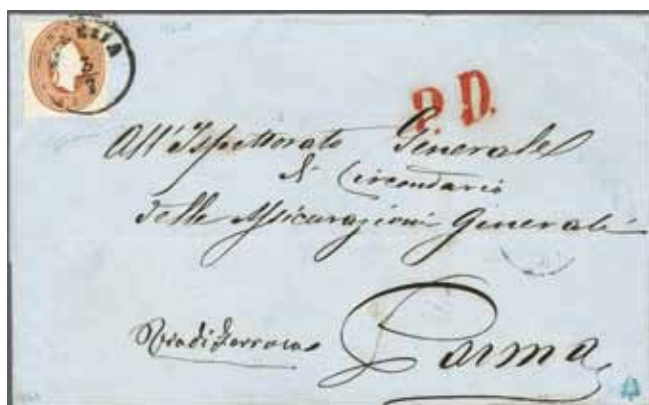 3/7
P. D.
All'Ispettorato Generale
di Circondario
delle Assicurazioni Generali
Via di Ferrara
Parma